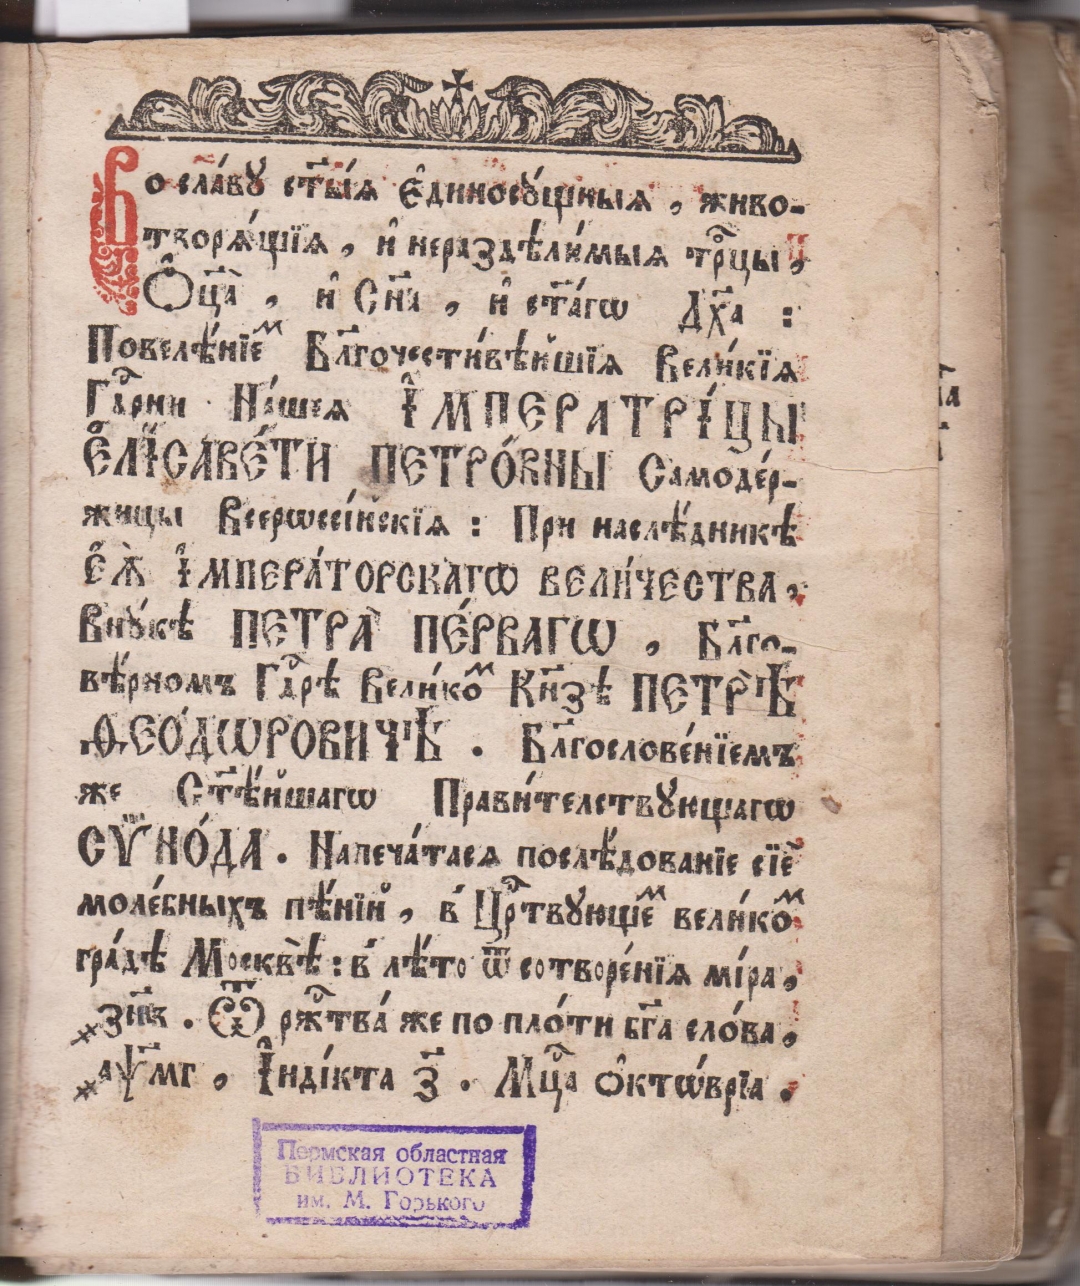 Во сла́вꙋ ст҃ы́ѧ Є҆диносꙋ́щныѧ, живо-
творѧ́щїѧ, и҆ нераздѣли́мыѧ трⷪ҇цы,
Ѻ҆ц҃а̀, и҆ Сн҃а, и҆ ст҃а́гѡ Дх҃а :
Повелѣ́нїеⷨ Бл҃гочести́вѣйшїѧ Вели́кїѧ
Гдⷭ҇рни На́шеѧ І҆МПЕРАТРІ́ЦЫ
Є҆ЛІСАВЕ́ТИ ПЕТРО́ВНЫ Самоде́р-
жицы Всерѡссі́йскїѧ : При наслѣ́дникѣ
Є҆Ѧ̀ І҆МПЕРА́ТОРСКАГѠ ВЕЛИ́ЧЕСТВА,
Внꙋ́кѣ ПЕТРА̀ ПЕ́РВАГѠ, Бл҃го-
вѣ́рномъ Гдⷭ҇рѣ Вели́коⷨ Кн҃зѣ ПЕТРѢ̀
ѲЕО́ДѠРОВИЧѢ. Бл҃гослове́нїемъ
же Ст҃ѣ́йшагѡ Прави́телствꙋющагѡ
СѴНО́ДА. Напеча́тасѧ послѣ́дованїе сїѐ
моле́бныхъ пѣ́нїй, в̾ Црⷭ҇твꙋющеⷨ вели́коⷨ
гра́дѣ Москвѣ̀ : в̾ лѣ́то ѿ сотворе́нїѧ мі́ра,
҂зн҃в. Ѿ ржⷭ҇тва́ же по пло́ти бг҃а сло́ва,
҂аѱ҃мг, І҆ндікта з҃. Мцⷭ҇а ѻ҆ктѡ́врїа.
Пермская областная
БИБЛИОТЕКА
им. М. Горького